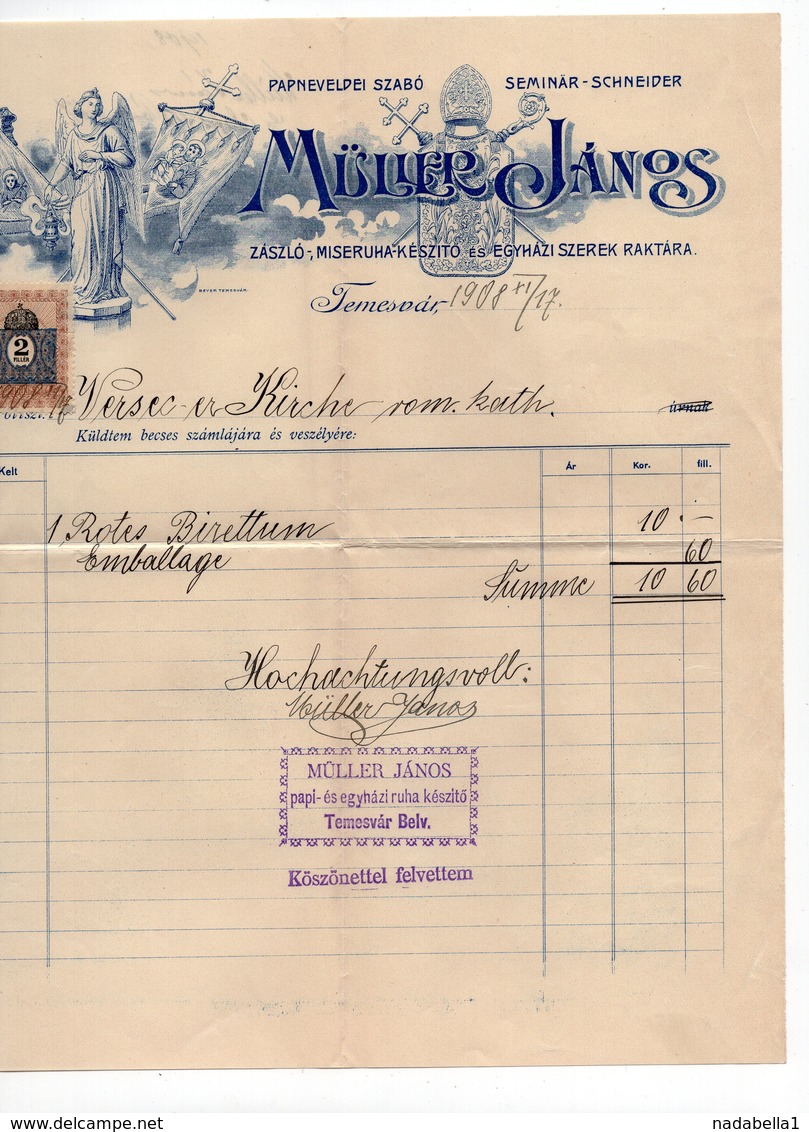 PAPNEVELDEI SZABÓ SEMINÄR-SCHNEIDER
MÜLLER JÁNOS
ZÁSZLÓ-, MISERUHA-KÉSZITŐ ÉS EGYHÁZI SZEREK RAKTÁRA.
BEYER TEMESVÁR.
Temesvár, 1908 XI/17.
2
FILLÉR
1908
Versec-er Kirche rom. kath. úrnak
Küldtem becses számlájára és veszélyére:
Kelt Ár Kor. fill.
1 Rotes Birettum 10 . —
Emballage 60
Summe 10 60
Hochachtungsvoll:
Müller Janos
MÜLLER JÁNOS
papi- és egyházi ruha készitő
Temesvár Belv.
Köszönettel felvettem
delcampe.net
nadabella1